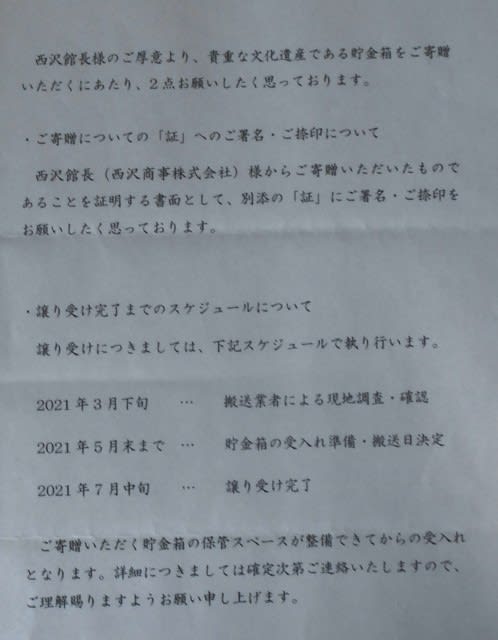 西沢館長様のご厚意より、貴重な文化遺産である貯金箱をご寄贈
いただくにあたり、2点お願いしたく思っております。
・ご寄贈についての「証」へのご署名・ご捺印について
西沢館長（西沢商事株式会社）様からご寄贈いただいたもので
あることを証明する書面として、別添の「証」にご署名・ご捺印を
お願いしたく思っております。
・譲り受け完了までのスケジュールについて
譲り受けにつきましては、下記スケジュールで執り行います。
2021年3月下旬 … 搬送業者による現地調査・確認
2021年5月末まで … 貯金箱の受入れ準備・搬送日決定
2021年7月中旬 … 譲り受け完了
ご寄贈いただく貯金箱の保管スペースが整備できてからの受入れ
となります。詳細につきましては確定次第ご連絡いたしますので、
ご理解賜りますようお願い申し上げます。